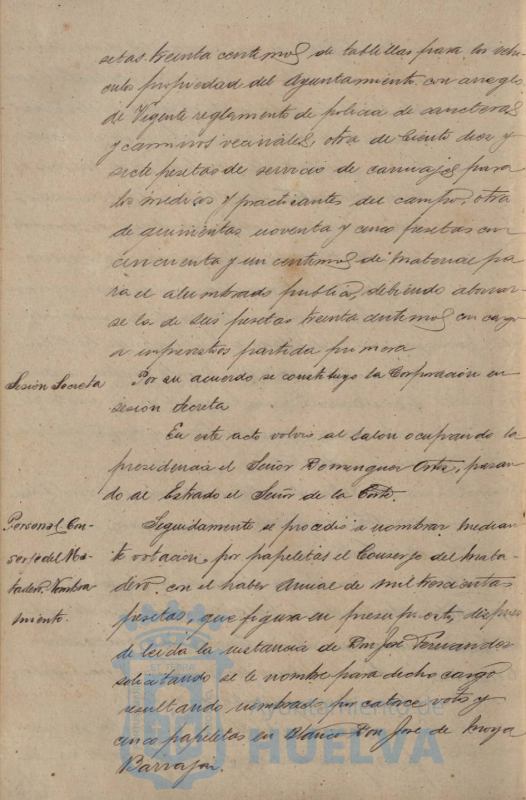 setas treinta centimos de tablillas para los vehi-
culos propiedad del Ayuntamiento con arreglo
al Vigente reglamento de policia de carreteras
y caminos vecinales, otra de Ciento diez y
siete pesetas de servicio de carruajes para
los medicos y practicantes del campo, otra
de quinientas noventa y cinco pesetas con
cincuenta y un centimos de material pa
ra el alumbrado publico, debiendo abonar-
se la de seis pesetas treinta centimos con cargo
a imprevistos partida primera
Sesión Secreta
Por su acuerdo se constituyó la Corporación en
sesión secreta
En este acto volvió al salon ocupando la
presidencia el Señor Dominguez Ortiz, pasan
do al Estrado el Señor de la Corte.
Personal, Con-
serje del Ma-
tadero, Nombra
miento.
Seguidamente se procedió a nombrar median
te votación, por papeletas el Conserje del mata-
dero, con el haber anual de mil trescientas
pesetas, que figura en presupuesto, despues
de leida la instancia de Don José Fernandez
solicitando se le nombre para dicho cargo
resultando nombrado por catorce votos y
cinco papeletas en blanco Don José de Moya
Barragán.
ET TERRA
Ayuntamiento de
HUELVA